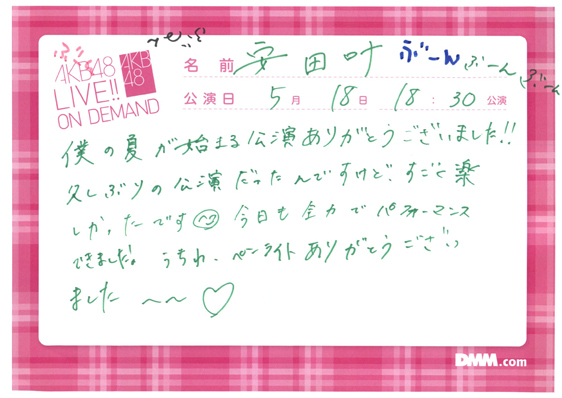 AKB48
LIVE!!
ON DEMAND
AKB
48
名前 安田叶 ぶーん ぶーん ぶーん
公演日 5月 18日 18:30 公演
僕の夏が始まる公演ありがとうございました!!
久しぶりの公演だったんですけど、すごく楽
しかったです 今日も全力でパフォーマンス
できました。うちわ、ペンライトありがとうござい
ました 〜〜♡
DMM.com